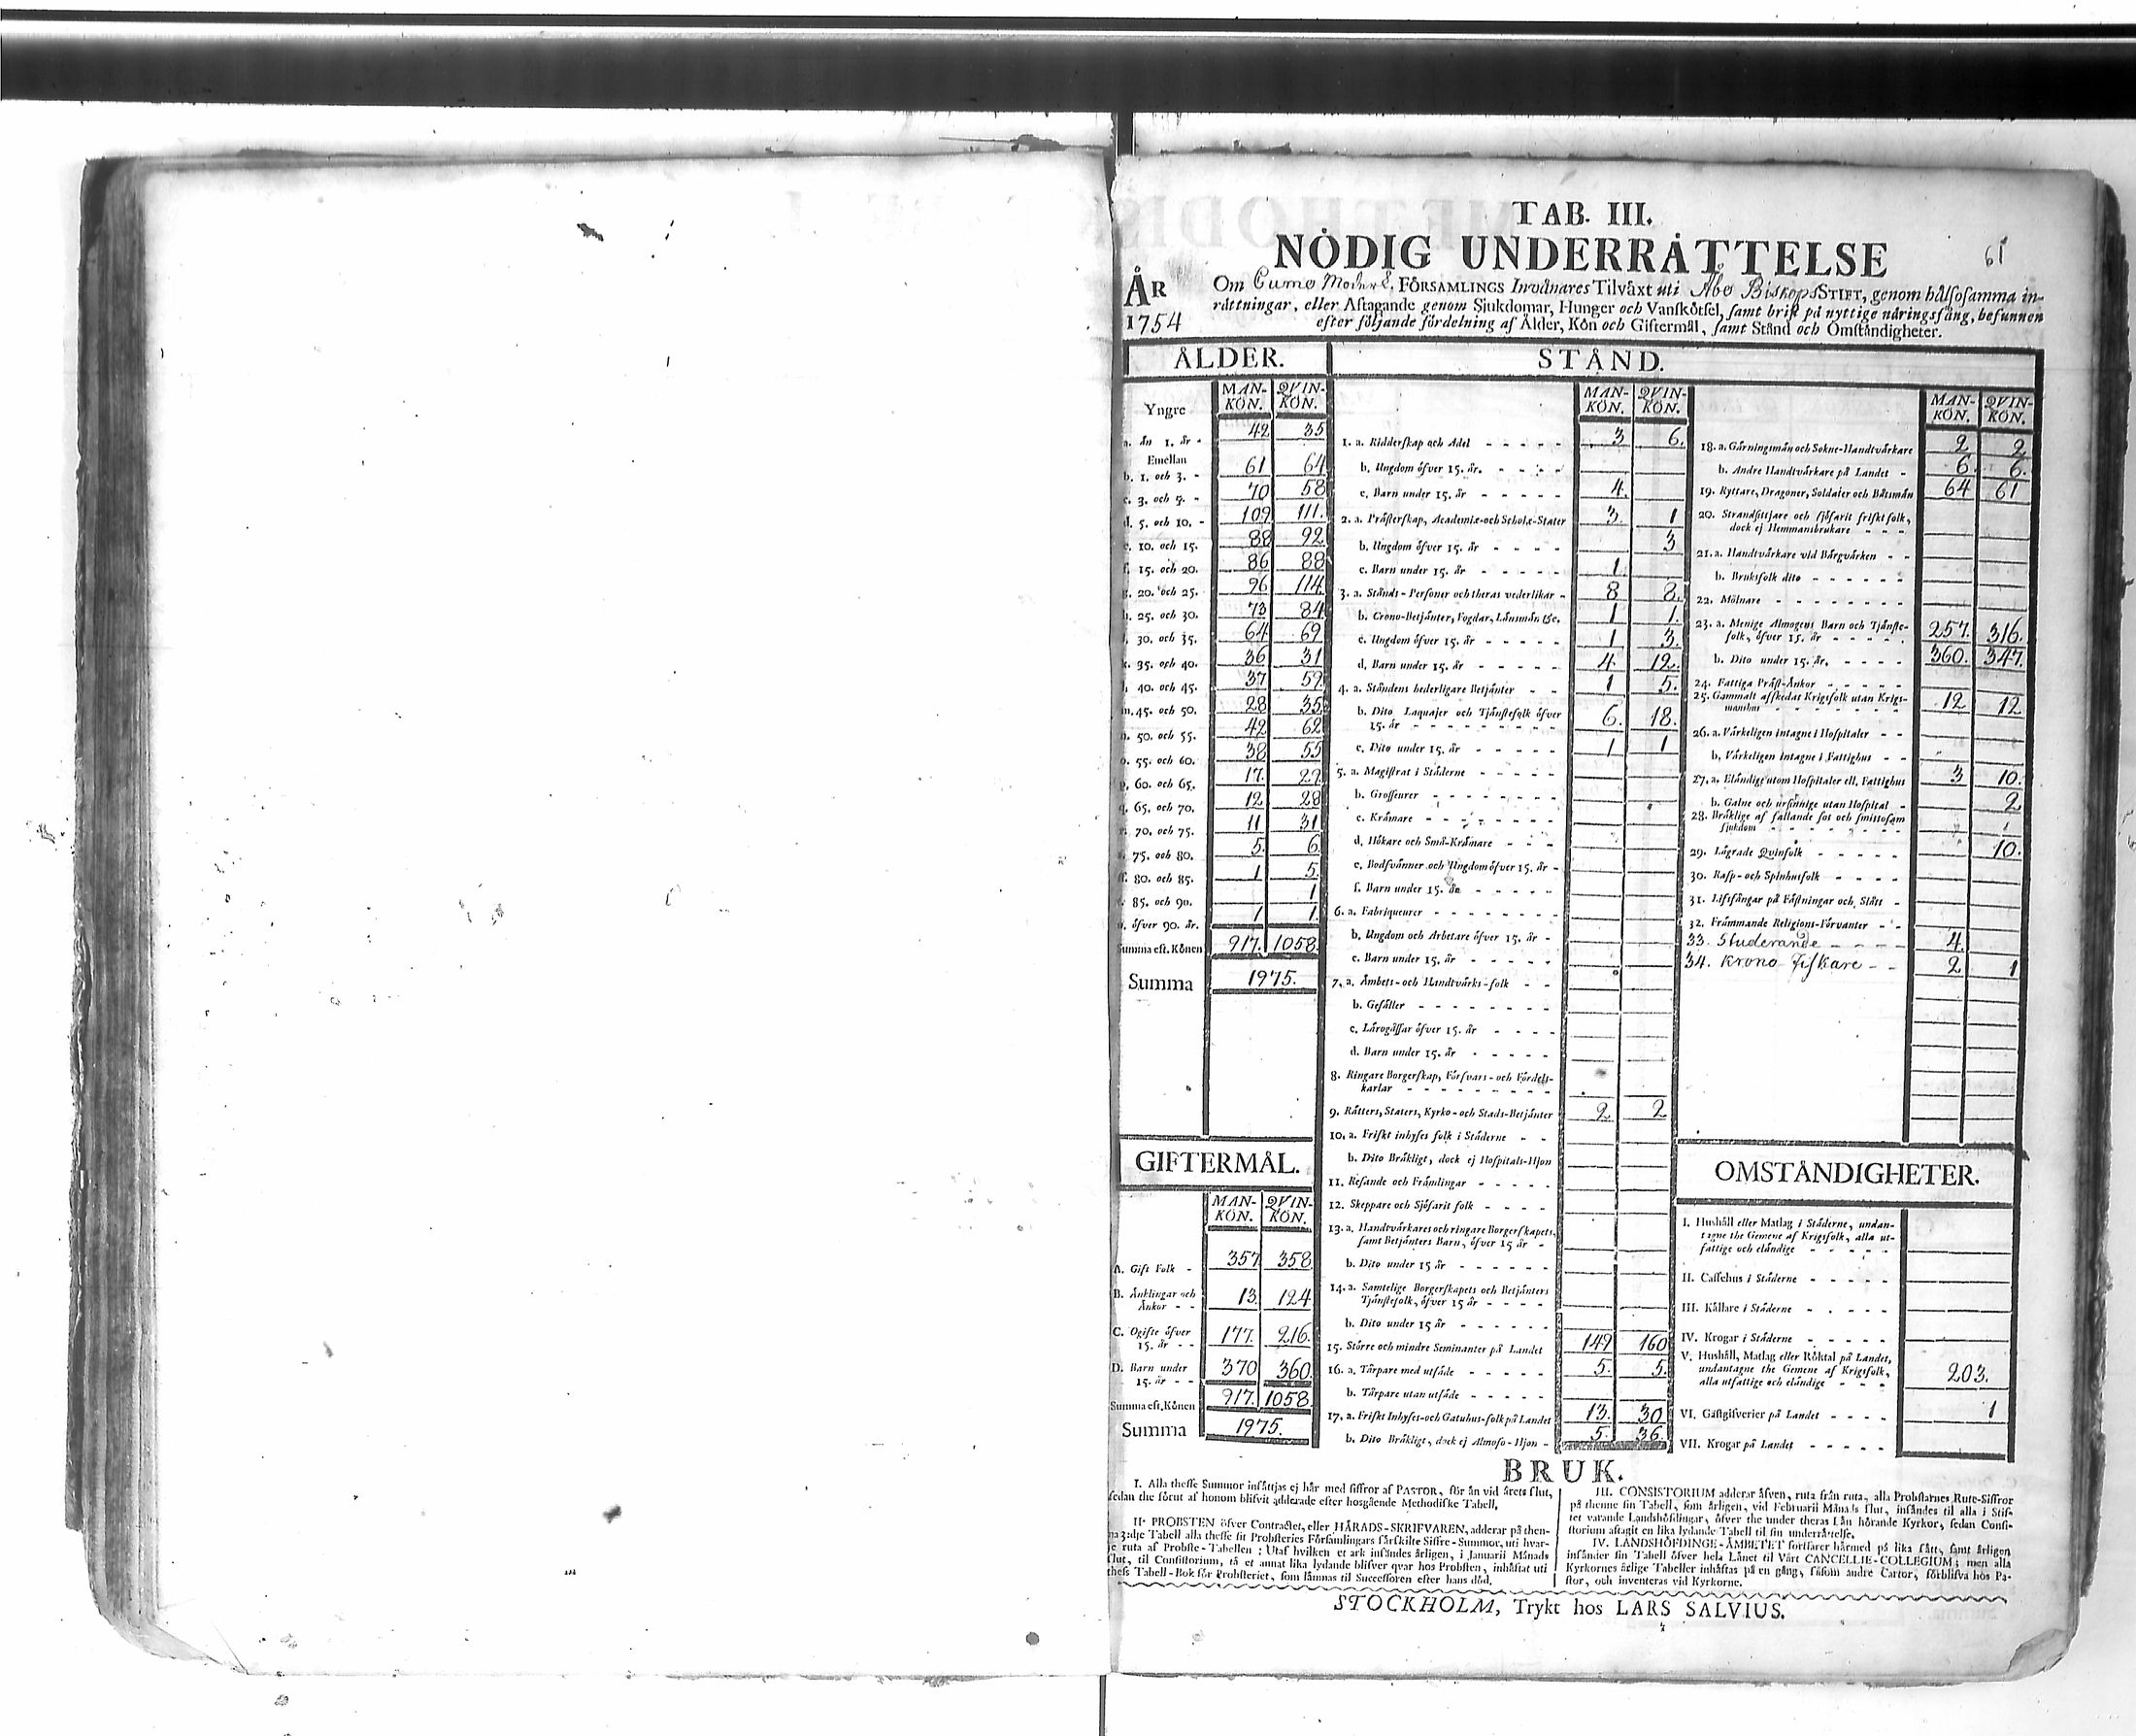 TAB. III.
NÖDIG UNDERRÅTTELSE
61
ÅR
1754
Om Cumo Moder F. FÖRSAMLINGS Invånares Tilvåxt uti Åbo BiskopsSTIFT, genom hålsosamma in-
råttningar, eller Aftagande genom Sjukdomar, Hunger och Vanskötsel, samt brist på nyttige näringsfång, befunnen
efter följande fördelning af Ålder, Kön och Giftermål, samt Stånd och Omståndigheter.
ÅLDER.
MAN-KÖN. QVIN-KÖN.
Yngre
a. än 1. år - 42 35
Emellan
b. 1. och 3. - 61 64
c. 3. och 5. - 70 58
d. 5. och 10. - 109 111.
e. 10. och 15. 88 92
f. 15. och 20. 86 88
g. 20. och 25. 96 114
h. 25. och 30. 73 84
i. 30. och 35. 64 69
k. 35. och 40. 36 31
l. 40. och 45. 37 59
m. 45. och 50. 28 35
n. 50. och 55. 42 62
o. 55. och 60. 38 55
p. 60. och 65. 17. 29
q. 65. och 70. 12 28
r. 70. och 75. 11 31
s. 75. och 80. 5. 6
ss. 80. och 85. 1 5.
t. 85. och 90. 1
u. öfver 90. år. 1 1
Summa eft. Könen 917. 1058.
Summa 1975.
GIFTERMÅL.
MAN-KÖN. QVIN-KÖN.
A. Gift Folk - 357 358
B. Änklingar och
Änkor - - 13. 124
C. Ogifte öfver
15. år - - 177. 216.
D. Barn under
15. år - - 370 360
Summa eft. Könen 917. 1058
Summa 1975.
STÅND.
MAN-KÖN. QVIN-KÖN.
1. a. Ridderskap och Adel - - - - - 3 6.
b. Ungdom öfver 15. år. - - - -
c. Barn under 15. år - - - - - 4.
2. a. Prästerskap, Academiæ- och Scholæ-Stater 3. 1
b. Ungdom öfver 15. år - - - - 3
c. Barn under 15. år - - - - - 1
3. a. Stånds-Personer och theras vederlikar - 8 8.
b. Crono-Betjänter, Fogdar, Länsmän &c. 1 1.
c. Ungdom öfver 15. år - - - - 1 3.
d. Barn under 15. år - - - - - 4. 12.
4. a. Ståndens hederligare Betjänter - - 1 5.
b. Dito Laquajer och Tjänstefolk öfver
15. år - - - - - - - - 6. 18.
c. Dito under 15. år - - - - - 1 1
5. a. Magistrat i Städerne - - - - -
b. Grosseurer - - - - - - -
c. Krämare - - - - - - -
d. Hökare och Små-Krämare - - -
e. Bodsvänner och Ungdom öfver 15. år -
f. Barn under 15. år - - - - -
6. a. Fabriqueurer - - - - - - -
b. Ungdom och Arbetare öfver 15. år -
c. Barn under 15. år - - - - -
7. a. Ämbets- och Handtvärks-folk - -
b. Gesäller - - - - - - - -
c. Lärogåssar öfver 15. år - - - -
d. Barn under 15. år - - - - -
8. Ringare Borgerskap, Försvars- och Fördels-
karlar - - - - - - - -
9. Rätters, Staters, Kyrko- och Stads-Betjänter 2 2
10. a. Friskt inhyses folk i Städerne - -
b. Dito Bräkligt, dock ej Hospitals-Hjon
11. Resande och Främlingar - - - - -
12. Skeppare och Sjöfarit folk - - - -
13. a. Handtvärkares och ringare Borgerskapets,
samt Betjänters Barn, öfver 15 år -
b. Dito under 15 år - - - - - -
14. a. Samtelige Borgerskapets och Betjänters
Tjänstefolk, öfver 15 år - - - -
b. Dito under 15 år - - - - - -
15. Större och mindre Seminanter på Landet 149 160
16. a. Tårpare med utsäde - - - - - 5. 5.
b. Tårpare utan utsäde - - - - -
17. a. Friskt Inhyses- och Gatuhus-folk på Landet 13. 30
b. Dito Bräkligt, dock ej Almoso-Hjon - 5. 36.
MAN-KÖN. QVIN-KÖN.
18. a. Gärningsmän och Sokne-Handtvärkare 2 2
b. Andre Handtvärkare på Landet - 6. 6.
19. Ryttare, Dragoner, Soldater och Båtsmän 64 61
20. Strandsittjare och sjöfarit friskt folk,
dock ej Hemmansbrukare - - -
21. a. Handtvärkare vid Bärgvärken - -
b. Bruksfolk dito - - - - - -
22. Mölnare - - - - - - - -
23. a. Menige Almogens Barn och Tjänste-
folk, öfver 15. år - - - - - 257. 316.
b. Dito under 15. år. - - - - 360. 347.
24. Fattiga Präst-Änkor - - - - -
25. Gammalt afskedat Krigsfolk utan Krigs-
manshus - - - - - - - 12 12
26. a. Värkeligen intagne i Hospitaler - -
b. Värkeligen intagne i Fattighus - -
27. a. Eländige utom Hospitaler ell. Fattighus 3 10.
b. Galne och ursinnige utan Hospital - 2
28. Bräklige af fallande sot och smittosam
sjukdom - - - - - - - 1
29. Lägrade Qvinfolk - - - - - 10.
30. Rasp- och Spinhusfolk - - - -
31. Lifsfångar på Fästningar och Slått -
32. Främmande Religions-Förvanter - -
33. Studerande - - - - 4.
34. Krono Fiskare - - 2 1
OMSTÅNDIGHETER.
I. Hushåll eller Matlag i Städerne, undan-
tagne the Gemene af Krigsfolk, alla ut-
fattige och eländige - - - - -
II. Caffehus i Städerne - - - - -
III. Källare i Städerne - - - - -
IV. Krogar i Städerne - - - - -
V. Hushåll, Matlag eller Röktal på Landet,
undantagne the Gemene af Krigsfolk,
alla utfattige och eländige - - - 203.
VI. Gästgifverier på Landet - - - - 1
VII. Krogar på Landet - - - - -
BRUK.
I. Alla thesse Summor insättjas ej här med siffror af PASTOR, för än vid årets slut,
sedan the förut af honom blifvit adderade efter hosgående Methodiske Tabell.
II. PROBSTEN öfver Contractet, eller HÄRADS-SKRIFVAREN, adderar på then-
na 3:dje Tabell alla thesse sit Probsteries Församlingars särskilte Siffre-Summor, uti hvar-
je ruta af Probste-Tabellen; Utaf hvilken et ark insändes årligen, i Januarii Månads
slut, til Consistorium, tå et annat lika lydande blifver qvar hos Probsten, inhäftat uti
thess Tabell-Bok för Probsteriet, som lämnas til Successoren efter hans död.
III. CONSISTORIUM adderar äfven, ruta från ruta, alla Probstarnes Rute-Siffror
på thenne sin Tabell, som årligen, vid Februarii Månads slut, insändes til alla i Stif-
tet varande Landshöfdingar, öfver the under theras Län hörande Kyrkor, sedan Consi-
storium aftagit en lika lydande Tabell til sin underrättelse.
IV. LANDSHÖFDINGE-ÄMBETET fortfarer härmed på lika sätt, samt årligen
insänder sin Tabell öfver hela Länet til Vårt CANCELLIE-COLLEGIUM; men alla
Kyrkornes årlige Tabeller inhäftas på en gång, såsom andre Cartor, förblifva hos Pa-
stor, och inventeras vid Kyrkorne.
STOCKHOLM, Trykt hos LARS SALVIUS.